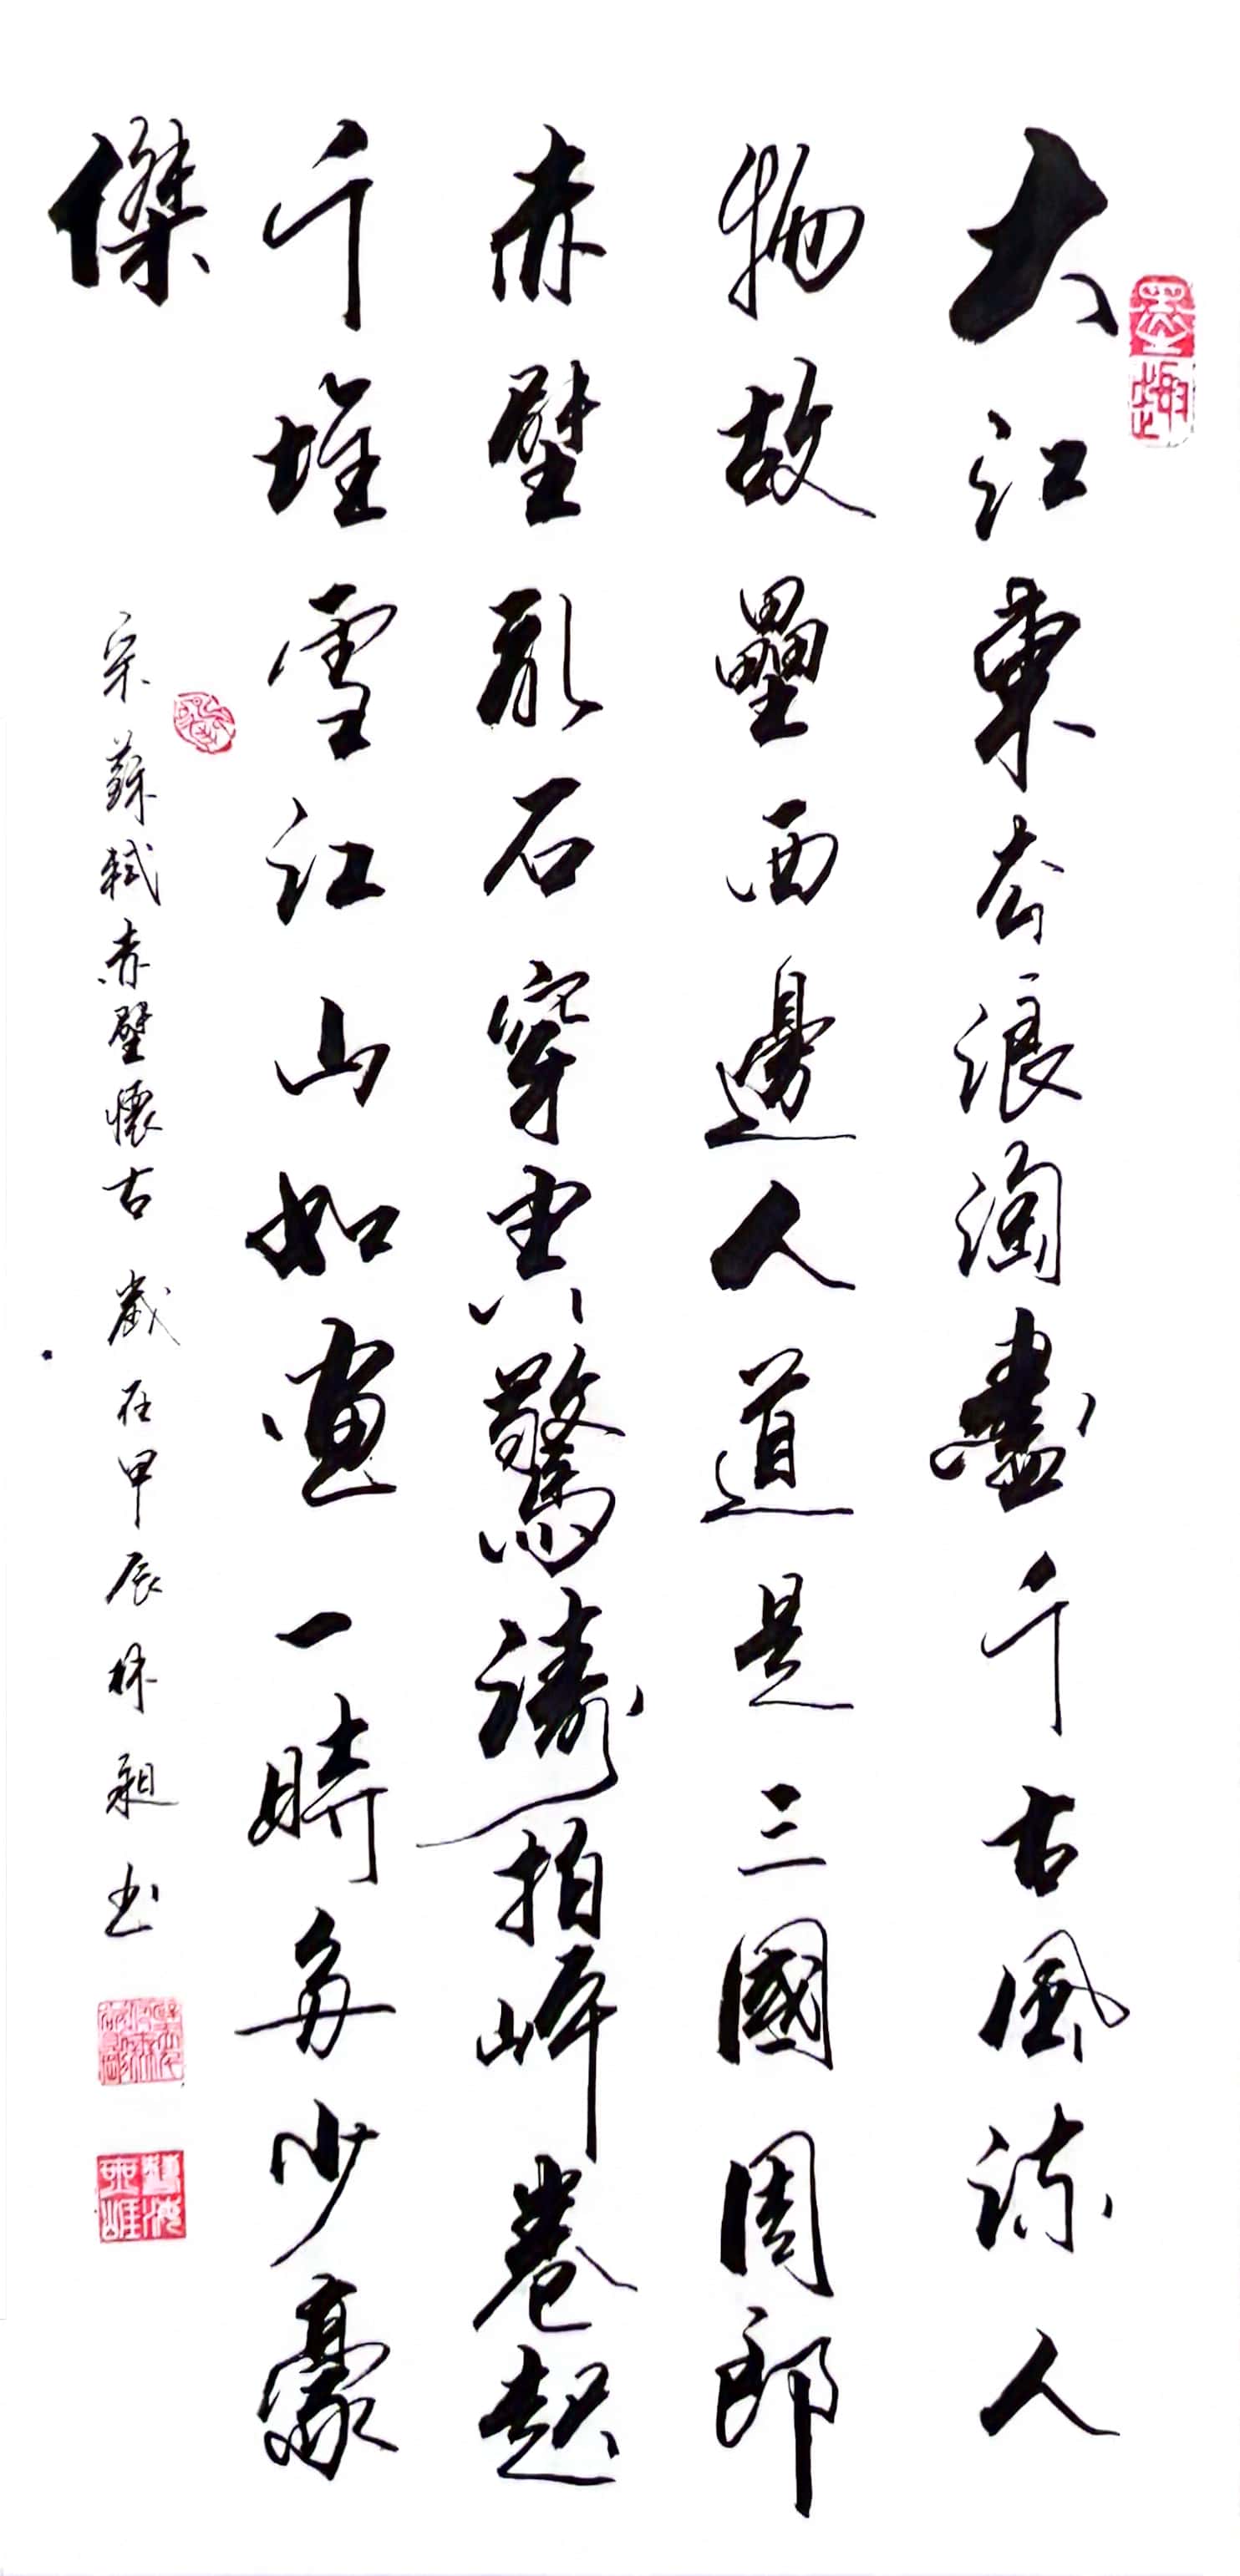 墨趣
大江東去浪淘盡千古風流人
物故壘西邊人道是三國周郎
赤壁亂石穿空驚濤拍岸卷起
千堆雪江山如畫一時多少豪
傑
宋蘇軾赤壁懷古 歲在甲辰林昶书
藝海無涯